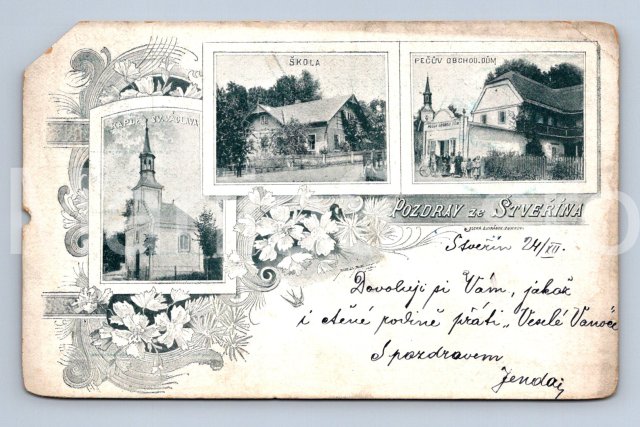 ŠKOLA
PEČŮV OBCHOD.DŮM
KAPLE SV. VÁCLAVA
POZDRAV ze STVEŘÍNA
Stveřín 24/XII.
Dovoluji si Vám, jakož
i ctěné rodině přáti „Veselé Vánoce
S pozdravem
Jenda